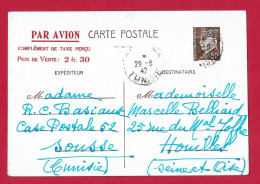 PAR AVION
CARTE POSTALE
COMPLÉMENT DE TAXE PERÇU
PRIX DE VENTE : 2 fr. 30
EXPÉDITEUR
DESTINATAIRE
29-6
42
80
Madame
R. C. Basiaux
Case Postale 52
Sousse
(Tunisie)
Mademoiselle
Marcelle Belliard
25 rue du
Houilles
(Seine et Oise)